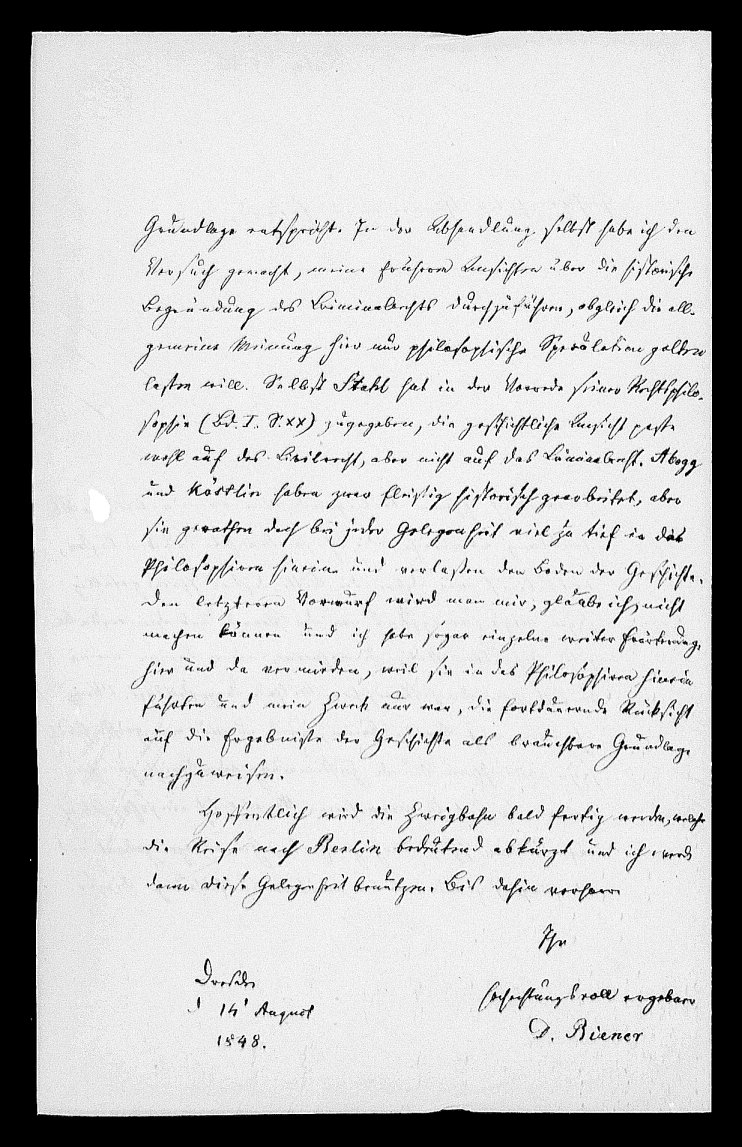 Grundlage entspricht. In der Abhandlung selbst habe ich den
Versuch gemacht, meine früheren Ansichten über die historische
Begründung des Criminalrechts durchzuführen, obgleich die all-
gemeine Meinung hier nur philosophische Speculation gelten
lassen will. Selbst Stahl hat in der Vorrede seiner Rechtsphilo-
sophie (Bd. I. S. XX) zugegeben, die geschichtliche Ansicht passe
wohl auf das Civilrecht, aber nicht auf das Criminalrecht. Abegg
und Köstlin haben zwar fleißig historisch gearbeitet, aber
sie gerathen doch bei jeder Gelegenheit viel zu tief in das
Philosophiren hinein und verlassen den Boden der Geschichte.
Den letzteren Vorwurf wird man mir, glaube ich, nicht
machen können und ich habe sogar einzelne weitere Erörterungen
hier und da vermieden, weil sie in das Philosophiren hinein
führten und mein Zweck nur war, die fortdauernde Rücksicht
auf die Ergebnisse der Geschichte als brauchbare Grundlage
nachzuweisen.
Hoffentlich wird die Zweigbahn bald fertig werden, welche
die Reise nach Berlin bedeutend abkürzt und ich werde
dann diese Gelegenheit benutzen. Bis dahin verharre
Ihr
Dresden
hochachtungsvoll ergebener
14 August
D. Biener
1848.